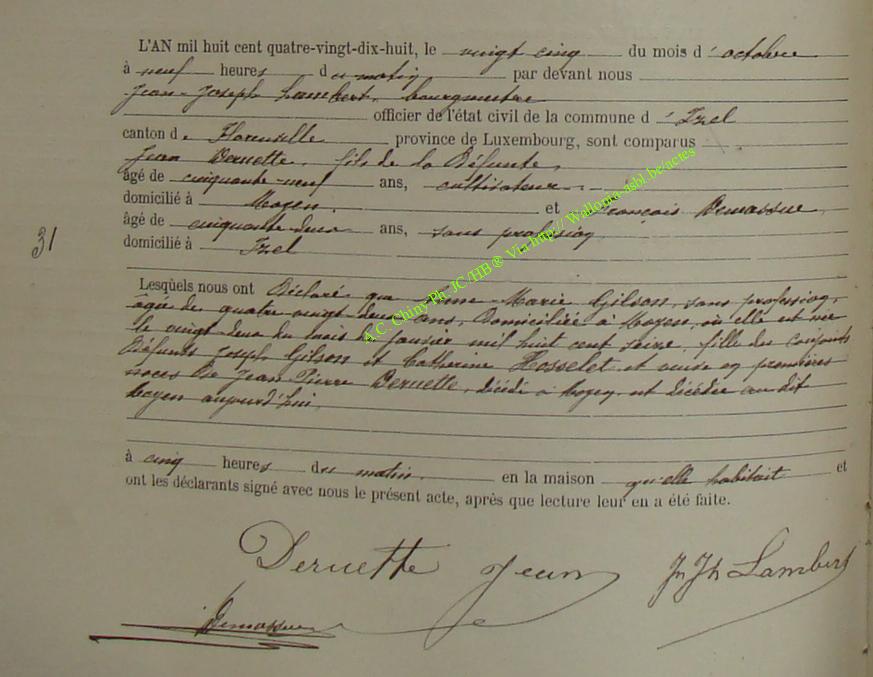 L'AN mil huit cent quatre-vingt-dix-huit, le vingt cinq du mois d'octobre
à neuf heures du matin par devant nous
Jean-Joseph Lambert, bourgmestre
officier de l'état civil de la commune d'Izel
canton de Florenville province de Luxembourg, sont comparus
Jean Deruette, fils de la Défunte,
âgé de cinquante-neuf ans, cultivateur
domicilié à Moyen et François Demassue,
âgé de cinquante deux ans, sans profession
domicilié à Izel
31
Lesquels nous ont Déclaré que Anne Marie Gilson, sans profession,
âgée de quatre vingt deux ans, Domiciliée à Moyen, où elle est née
le vingt deux du mois de janvier mil huit cent seize, fille des conjoints
Défunts Joseph Gilson et Catherine Hosselet et veuve en premières
noces de Jean Pierre Deruette, décédé à Moyen, est décédée au dit
Moyen aujourd'hui
à cinq heures du matin en la maison qu'elle habitait et
ont les déclarants signé avec nous le présent acte, après que lecture leur en a été faite.
Deruette Jean Jn Jh Lambert
Demassue
A.C. Chiny Ph. JC/HB® Via http://Wallonia-asbl.be/actes